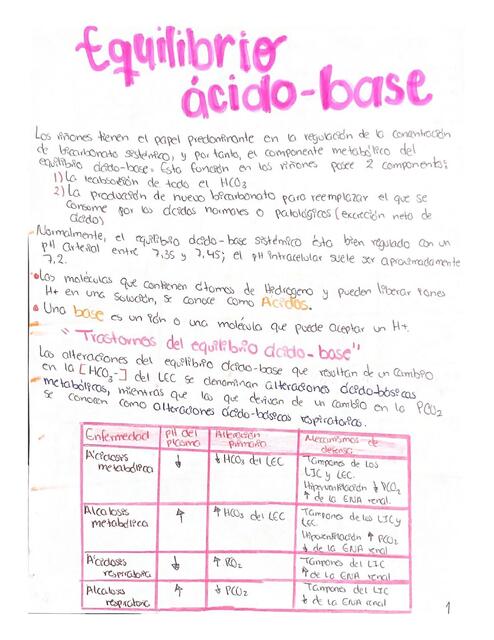 Equilibrio
ácido-base
Los riñones tienen el papel predominante en la regulación de la concentración
de bicarbonato sistémico, y por tanto, el componente metabólico del
equilibrio ácido-base. Esta función en los riñones posee 2 componentes:
1) La reabsorción de todo el HCO3
2) La producción de nuevo bicarbonato para reemplazar el que se
consume por los ácidos normales o patológicos (excreción neta de
ácido)
Normalmente, el equilibrio ácido-base sistémico esta bien regulado con un
pH arterial entre 7,35 y 7,45; el pH intracelular suele ser aproximadamente
7,2.
•Las moléculas que contienen átomos de Hidrogeno y pueden liberar iones
H+ en una solución, se conoce como Ácidos.
• Una base es un ión o una molécula que puede aceptar un H+.
"Trastornos del equilibrio ácido-base"
Las alteraciones del equilibrio ácido-base que resultan de un cambio
en la [HCO3-] del LEC se denominan alteraciones ácido-básicas
metabólicas, mientras que las que derivan de un cambio en la PCO2
se conocen como alteraciones ácido-básicas respiratorias.
Enfermedad pH del plasmo Alteración primaria Mecanismos de defensa
Acidosis metabólica ↓ ↓ HCO3 del LEC Tampones de los LIC y LEC.
Hiperventilación ↓ PCO2
↑ de la ENA renal.
Alcalosis metabólica ↑ ↑ HCO3 del LEC Tampones de los LIC y LEC.
Hipoventilación ↑ PCO2
↓ de la ENA renal
Acidosis respiratoria ↓ ↑ PCO2 Tampones del LIC
↑ de la ENA renal
Alcalosis respiratoria ↑ ↓ PCO2 Tampones del LIC
↓ de la ENA renal
1